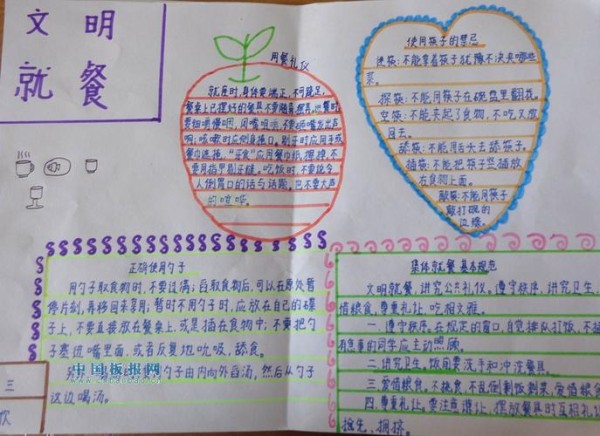 文明
就餐
用餐礼仪
就座时,身体要端正,不可跷足,
餐桌上已摆好的餐具不要随意摆弄,
要细嚼慢咽,闭嘴
使用筷子的禁忌
迷筷:不能拿着筷子犹豫不决夹哪些
菜。
探筷:不能用筷子在碗盘里翻挑。
空筷:不能夹起了食物,不吃又放
回去。
舔筷:不能用舌头去舔筷子。
插筷:不能把筷子竖插放
在食物上面。
敲筷:不能用筷子
敲打碗的
边缘。
正确使用勺子
用勺子取食物时,不要过满;舀取食物后,可以在原处暂
停片刻,再移回来享用;暂时不用勺子时,应放在自己的碟
子上,不要直接放在餐桌上,或是插在食物中;不要把勺
子塞进嘴里面,或者反复地吮吸、舔食。
勺子由内向外舀汤,然后从勺子
这边喝汤。
集体就餐基本规范
文明就餐,讲究公共礼仪。遵守秩序,讲究卫生,
惜粮食,尊重礼让,吃相文雅。
一.遵守秩序。在规定的窗口,自觉排队打饭,不
有急事的同学应主动照顾。
二.讲究卫生。饭前要洗手和冲洗餐具。
三.爱惜粮食。不挑食,不乱倒剩饭剩菜,爱惜粮食
四.尊重礼让。要注意谦让,摆放餐具时互相礼
抢先、拥挤。
三
中国板报网